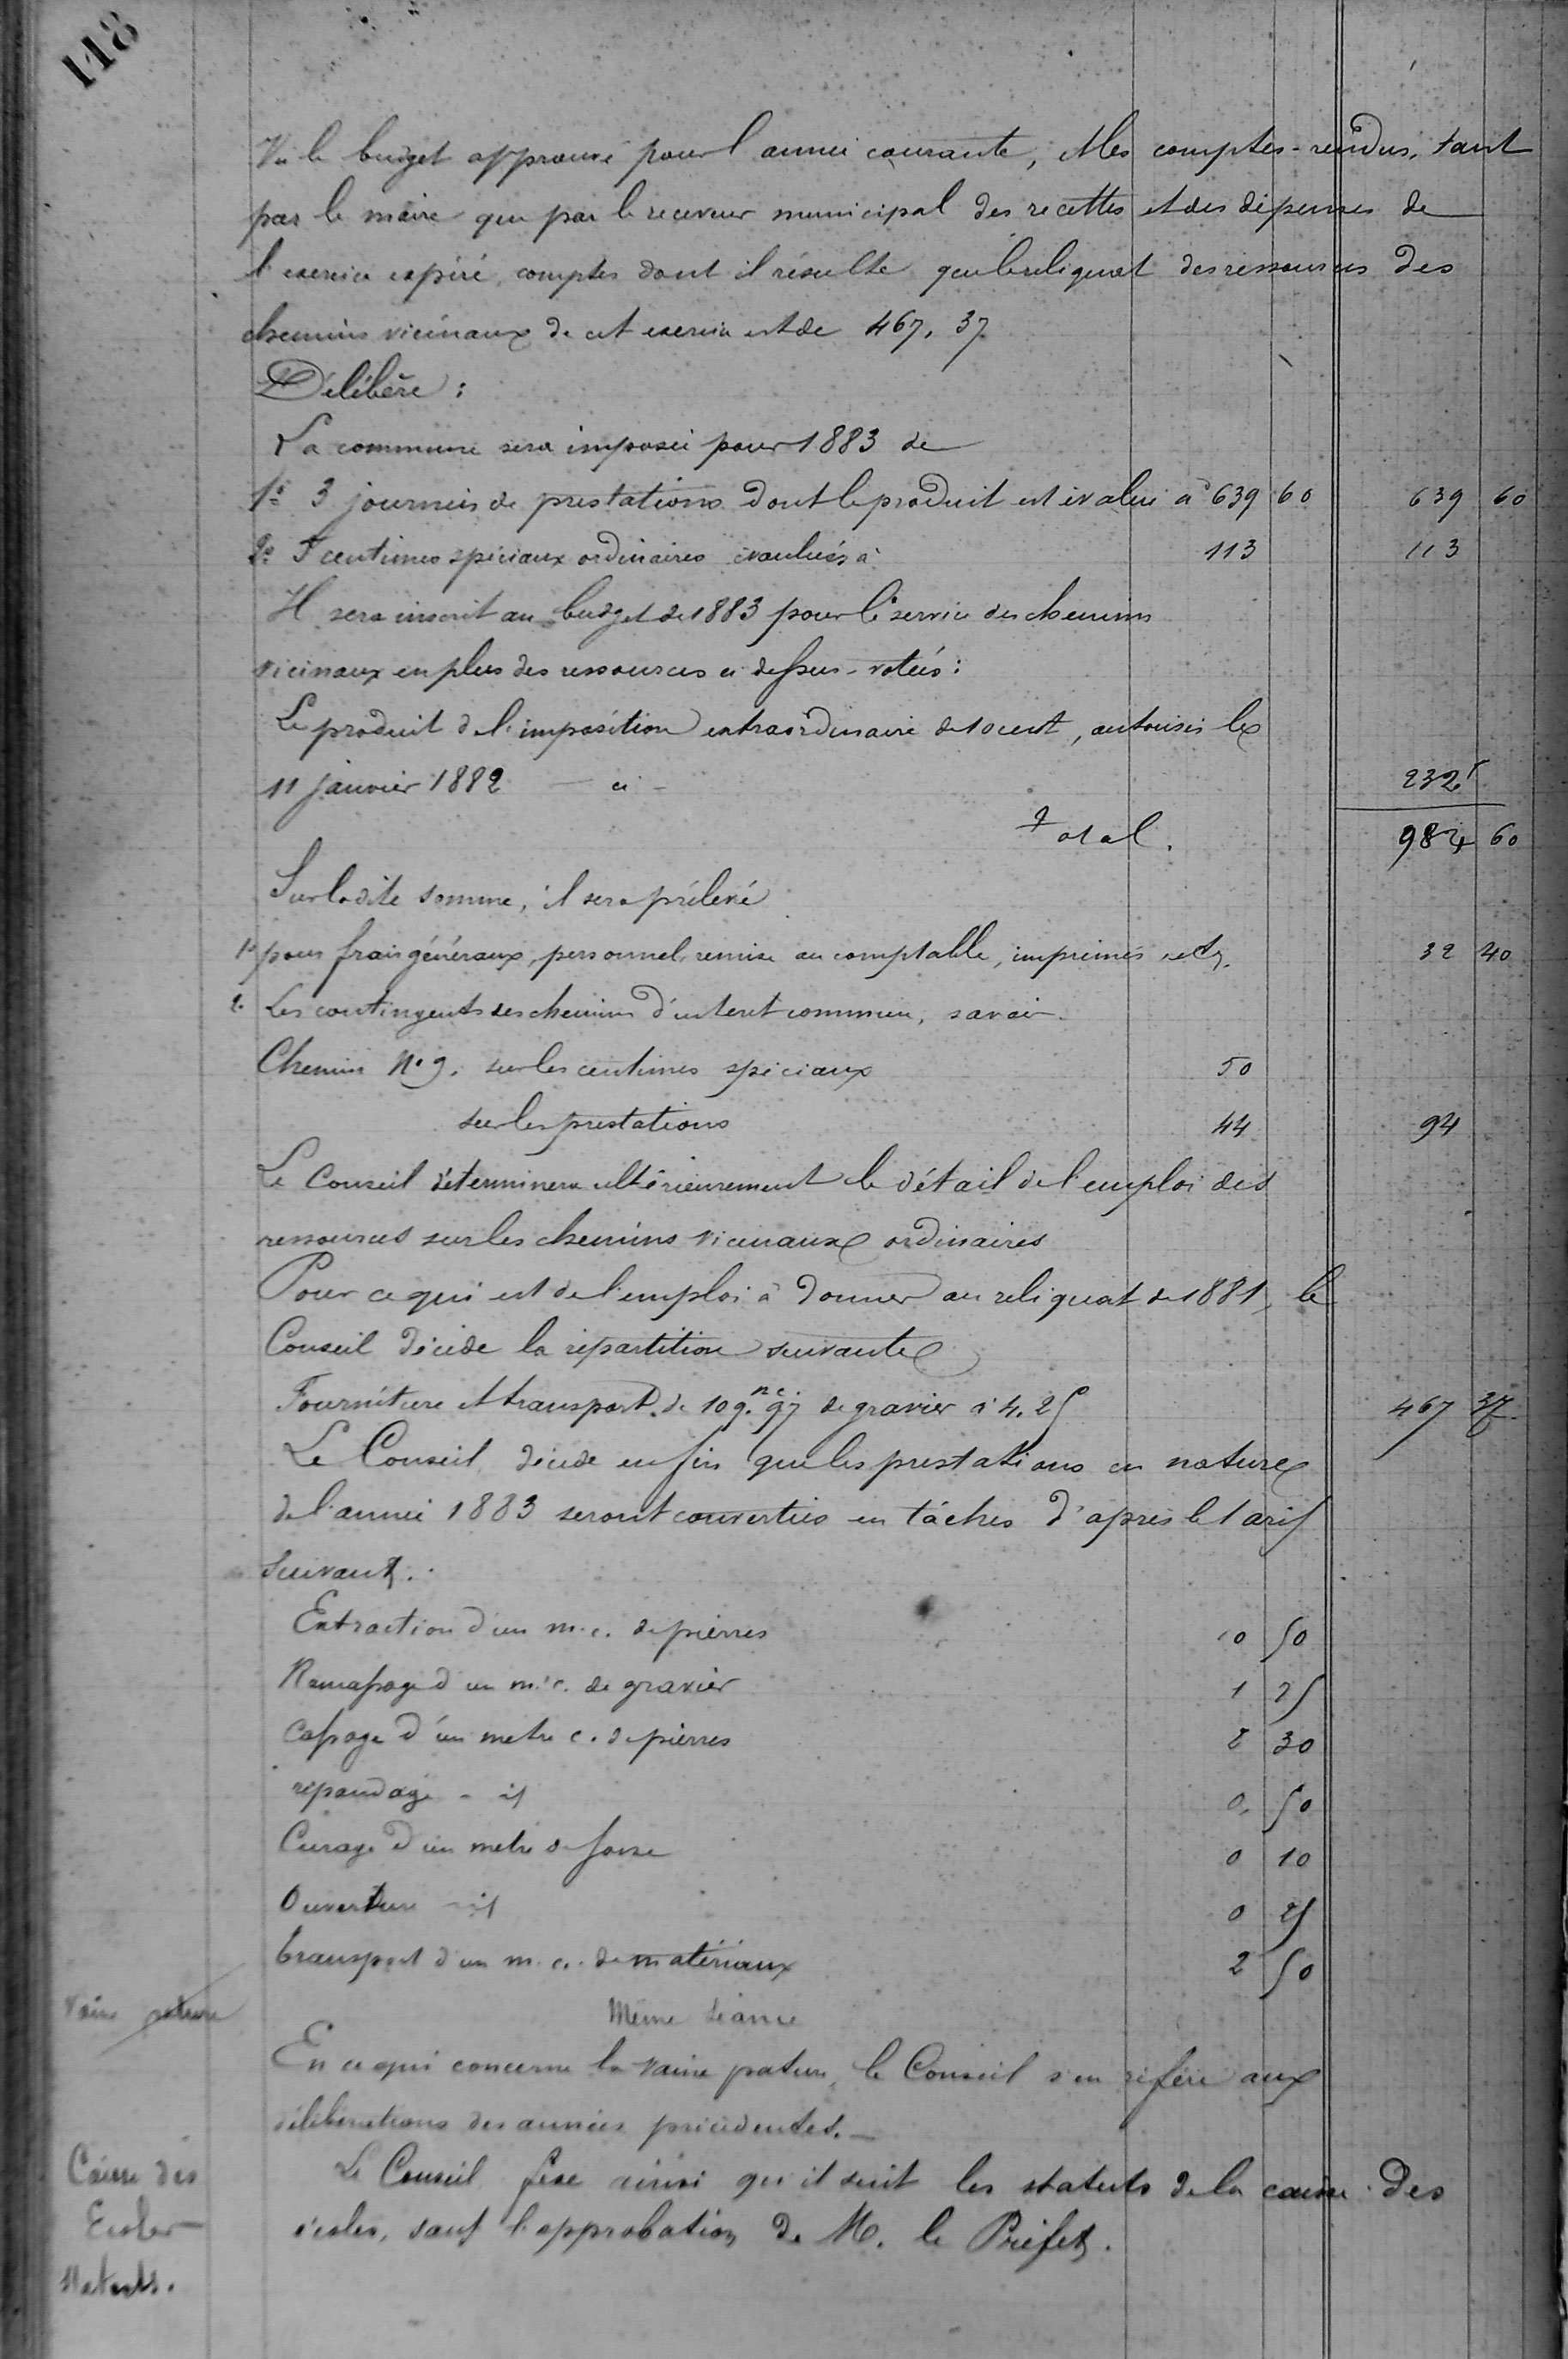 118
Vu le budget approuvé pour l'année courante, et les comptes-rendus, tant
par le maire que par le receveur municipal des recettes et des dépenses de
l'exercice expiré, comptes dont il résulte que le reliquat des ressources des
chemins vicinaux de cet exercice est de 467,37
Délibère :
La commune sera imposée pour 1883 de
1° 3 journées de prestations dont le produit est évalué à 639 60 639 60
2° 5 centimes spéciaux ordinaires évalués à 113 113
Il sera inscrit au budget de 1883 pour le service des chemins
vicinaux en plus des ressources ci dessus-votées :
Le produit de l'imposition extraordinaire de 10 cent, autorisée le
11 janvier 1882 - ci - 232f
Total. 984 60
Sur ladite somme, il sera prélevé
1° pour frais généraux, personnel, remise au comptable, imprimés, etc. 32 40
2° Les contingents des chemins d'intérêt commun, savoir
Chemin N° 9. sur les centimes spéciaux 50
sur les prestations 44 94
Le Conseil déterminera ultérieurement le détail de l'emploi des
ressources sur les chemins vicinaux ordinaires
Pour ce qui est de l'emploi à donner au reliquat de 1881, le
Conseil décide la répartition suivante
Fourniture et transport de 109.mc 97 de gravier à 4.25 467 37
Le Conseil décide enfin que les prestations en nature
de l'année 1883 seront converties en tâches d'après le tarif
suivant.
Extraction d'un m.c. de pierres 0 50
Ramassage d'un m.c. de gravier 1 25
Cassage d'un metre c. de pierres 2 30
répandage - id 0, 50
Curage d'un metre de fosse 0 10
Ouverture - id 0 25
transport d'un m.c. de matériaux 2 50
Vaine pature
Même séance
En ce qui concerne la vaine pature, le Conseil s'en réfère aux
délibérations des années précédentes.—
Caisse des
Ecoles
statuts.
Le Conseil fixe ainsi qu'il suit les statuts de la caisse des
écoles, sauf l'approbation de M. le Préfet.